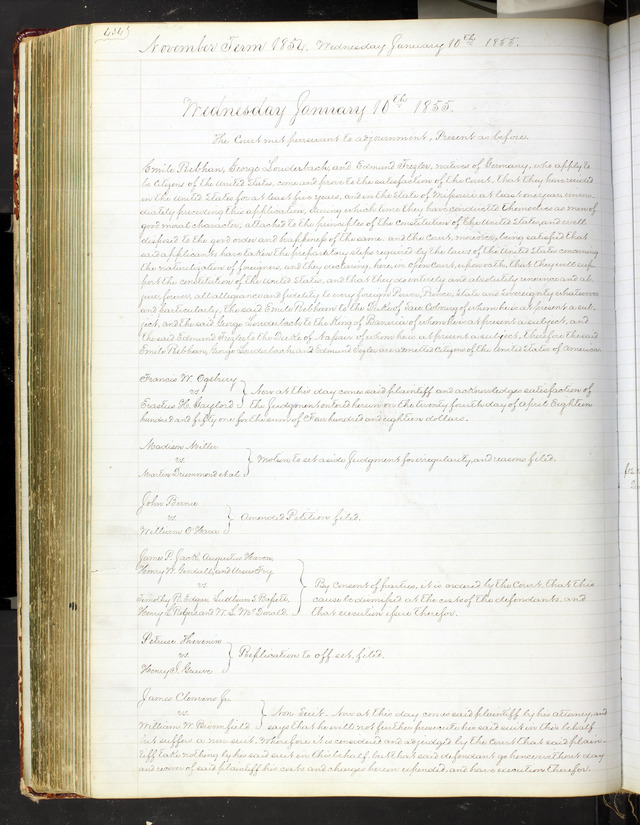 434
November Term 1854. Wednesday January 10th 1855.
Wednesday January 10th 1855.
The Court met pursuant to adjournment, Present as before.
Emile Rebhan, George Louderback, and Edmund Ziegler, natives of Germany, who apply to
be Citizens of the United States, come and prove to the satisfaction of the Court, that they have resided
in the United States for at least five years, and in the State of Missouri at least one year imme-
diately preceding this application, during which time they have conducted themselves as men of
good moral character, attached to the principles of the Constitution of the United States, and well
disposed to the good order and happiness of the same. and the Court, moreover, being satisfied that
said applicants have taken the preparatory steps required by the laws of the United States concerning
the naturalization of foreigners, and they declaring, here, in open Court, upon oath, that they will sup-
port the constitution of the United States, and that they absolutely and entirely renounce and ab-
jure forever, all allegiance and fidelity to every foreign Power, Prince, State and Sovereignty whatsoever
and particularly, the said Emile Rebhan to the Duke of Saxe Coburg of whom he is at present a sub-
ject, and the said George Louderback to the King of Bavaria of whom he is at present a subject, and
the said Edmund Ziegler to the Duke of Nassau of whom he is at present a subject, therefore the said
Emile Rebhan, George Louderback and Edmund Ziegler are admitted Citizens of the United States of American
Francis W.
vs } Now at this day comes said plaintiff and acknowledges satisfaction of
Erastus H. the Judgment entered herein on the twenty fourth day of April Eighteen
hundred and fifty one for the sum of Four hundred and eighteen dollars.
Madison Miller
vs. } Motion to set aside Judgment for irregularity, and reasons filed.
Martin Drummond et al
John Bernie
vs. } Amended Petition filed.
William O'Hara
James P. Jack, Augustus
Henry W. Kendall, and
vs } By consent of parties, it is ordered by the Court, that this
Timothy R. Edgar, cause be dismissed at the cost of the defendants, and
Henry L. and W. L. McDonald that execution issue therefor.
Peteuse Thevenin
vs. } Replication to off set, filed.
Henry J.
James Clemens Jr
vs. } Non Suit. Now at this day comes said plaintiff by his attorney, and
William W. Bromfield says that he will not further prosecute his said suit in this behalf
but suffers a non suit. Wherefore it is considered and adjudged by the Court that said plain-
tiff take nothing by his said suit in this behalf but that said defendant go hence without day
and recover of said plaintiff his costs and charges herein expended, and have execution therefor.